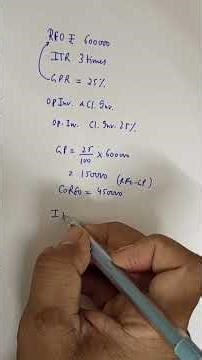 RFO ₹ 600000
ITR 3 times
GPR = 25%
Op Inv. & Cl. Inv.
Op. Inv. Cl. Inv. 25%
GP = 25/100 x 60000
= 150000 (RFO-GP)
CoRFO = 450000
I